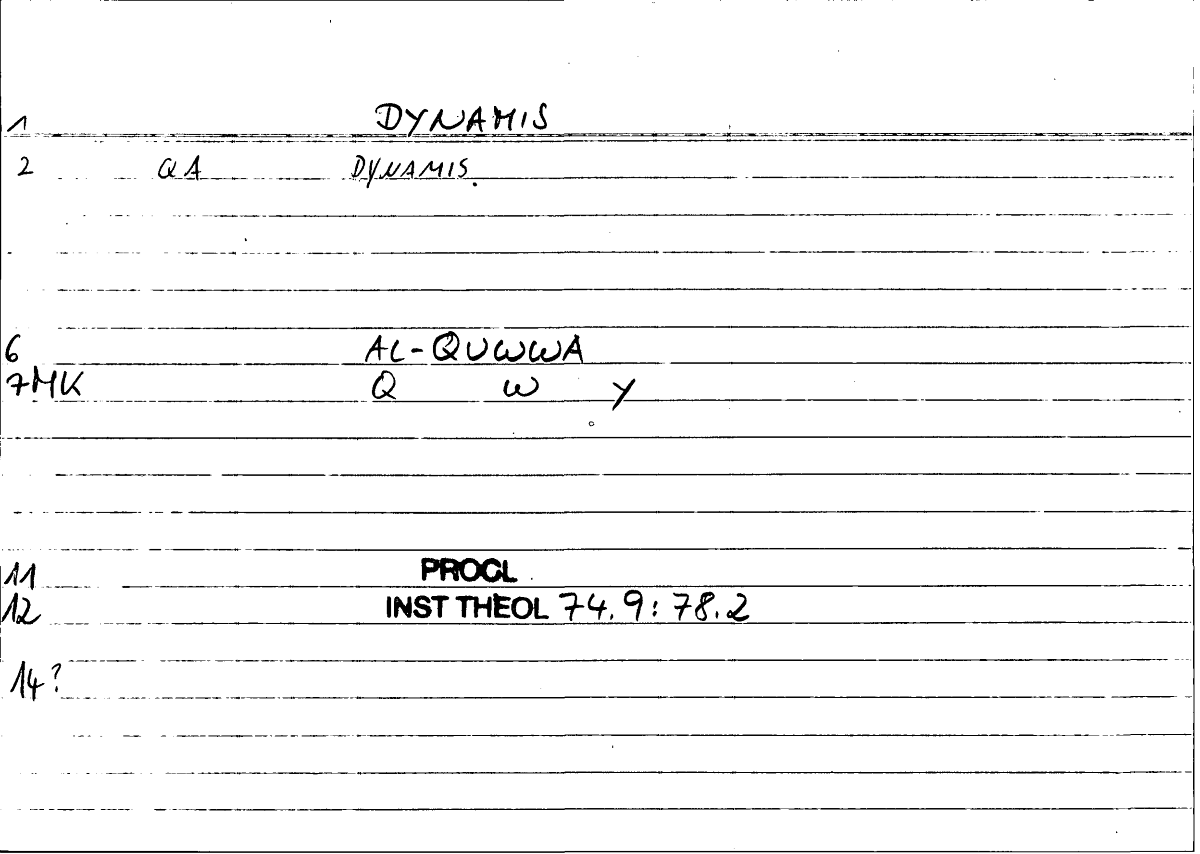 1 DYNAMIS
2 QA DYNAMIS.
6 AL-QUWWA
7MK Q W Y
11 PROCL
12 INST THEOL 74.9:78.2
14?